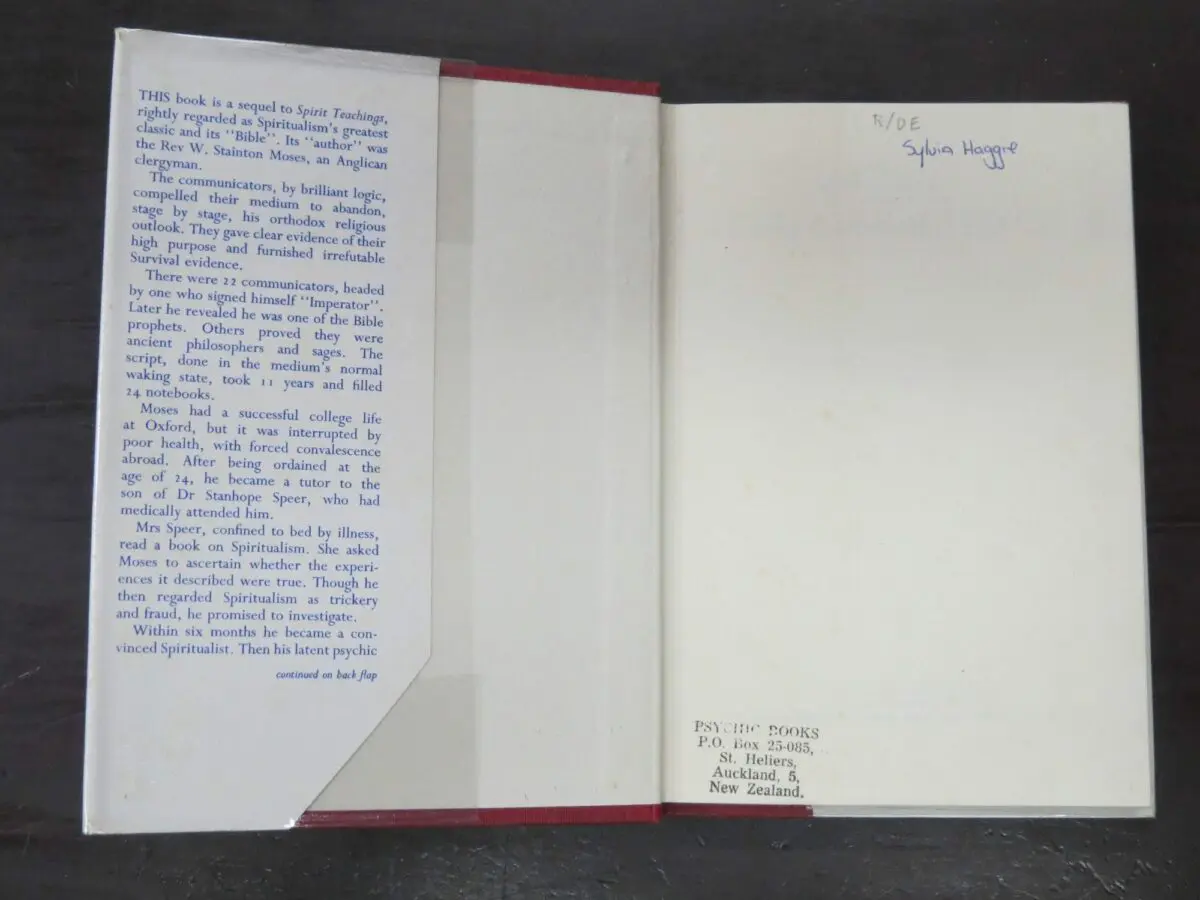 THIS book is a sequel to Spirit Teachings,
rightly regarded as Spiritualism's greatest
classic and its "Bible". Its "author" was
the Rev W. Stainton Moses, an Anglican
clergyman.
The communicators, by brilliant logic,
compelled their medium to abandon,
stage by stage, his orthodox religious
outlook. They gave clear evidence of their
high purpose and furnished irrefutable
Survival evidence.
There were 22 communicators, headed
by one who signed himself "Imperator".
Later he revealed he was one of the Bible
prophets. Others proved they were
ancient philosophers and sages. The
script, done in the medium's normal
waking state, took 11 years and filled
24 notebooks.
Moses had a successful college life
at Oxford, but it was interrupted by
poor health, with forced convalescence
abroad. After being ordained at the
age of 24, he became a tutor to the
son of Dr Stanhope Speer, who had
medically attended him.
Mrs Speer, confined to bed by illness,
read a book on Spiritualism. She asked
Moses to ascertain whether the experi-
ences it described were true. Though he
then regarded Spiritualism as trickery
and fraud, he promised to investigate.
Within six months he became a con-
vinced Spiritualist. Then his latent psychic
continued on back flap
R/DE
Sylvia Haggie
PSYCHIC BOOKS
P.O. Box 25-085,
St. Heliers,
Auckland, 5,
New Zealand.